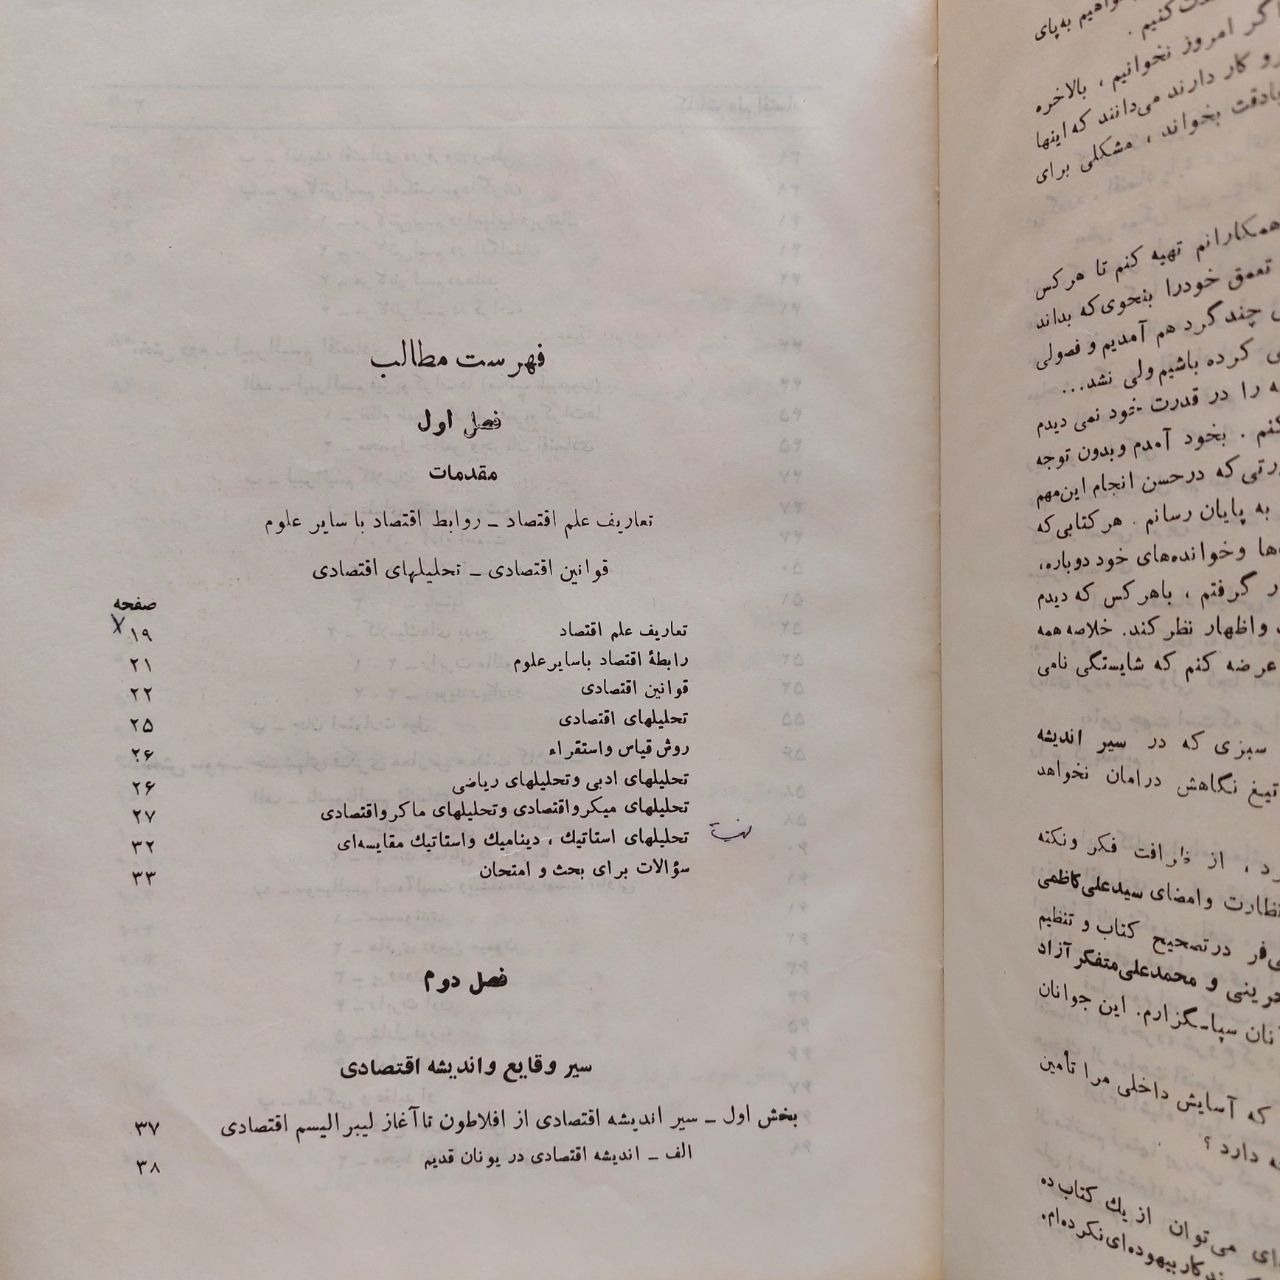 فهرست مطالب
فصل اول
مقدمات
تعاریف علم اقتصاد ـ روابط اقتصاد با سایر علوم
قوانین اقتصادی ـ تحلیلهای اقتصادی
صفحه
تعاریف علم اقتصاد ۱۹
رابطهٔ اقتصاد باسایرعلوم ۲۱
قوانین اقتصادی ۲۲
تحلیلهای اقتصادی ۲۵
روش قیاس واستقراء ۲۶
تحلیلهای ادبی وتحلیلهای ریاضی ۲۶
تحلیلهای میکرواقتصادی وتحلیلهای ماکرواقتصادی ۲۷
تحلیلهای استاتیك ، دینامیك واستاتیك مقایسه‌ای ۳۲
سؤالات برای بحث و امتحان ۳۳
فصل دوم
سیر وقایع واندیشه اقتصادی
بخش اول ـ سیر اندیشه اقتصادی از افلاطون تاآغاز لیبرالیسم اقتصادی ۳۷
الف ـ اندیشه اقتصادی در یونان قدیم ۳۸
به‌پای
کنیم .
امروز نخوانیم ، بالاخره
کار دارند می‌دانند که اینها
بادقت بخواند ، مشکلی برای
همکارانم تهیه کنم تا هرکس
تعمق خودرا بنحوی‌که بداند
چندگرد هم آمدیم و فصولی
کرده باشیم ولی نشد...
را در قدرت خود نمی دیدم
. بخود آمدم وبدون توجه
که درحسن انجام این‌مهم
به پایان رسانم . هرکتابی‌که
وخوانده‌های خود دوباره،
گرفتم ، باهرکس که دیدم
واظهار نظرکند. خلاصه همه
عرضه کنم که شایستگی نامی
سبزی که در سیر اندیشه
تیغ نگاهش درامان نخواهد
، از ظرافت فکر ونکته
وامضای سیدعلی‌کاظمی
درتصحیح کتاب و تنظیم
و محمدعلی‌متفکر آزاد
سپاسگزارم. این جوانان
که آسایش داخلی مرا تأمین
دارد ؟
می‌توان از یك کتاب ده
کاربیهوده‌ای‌نکرده‌ام.